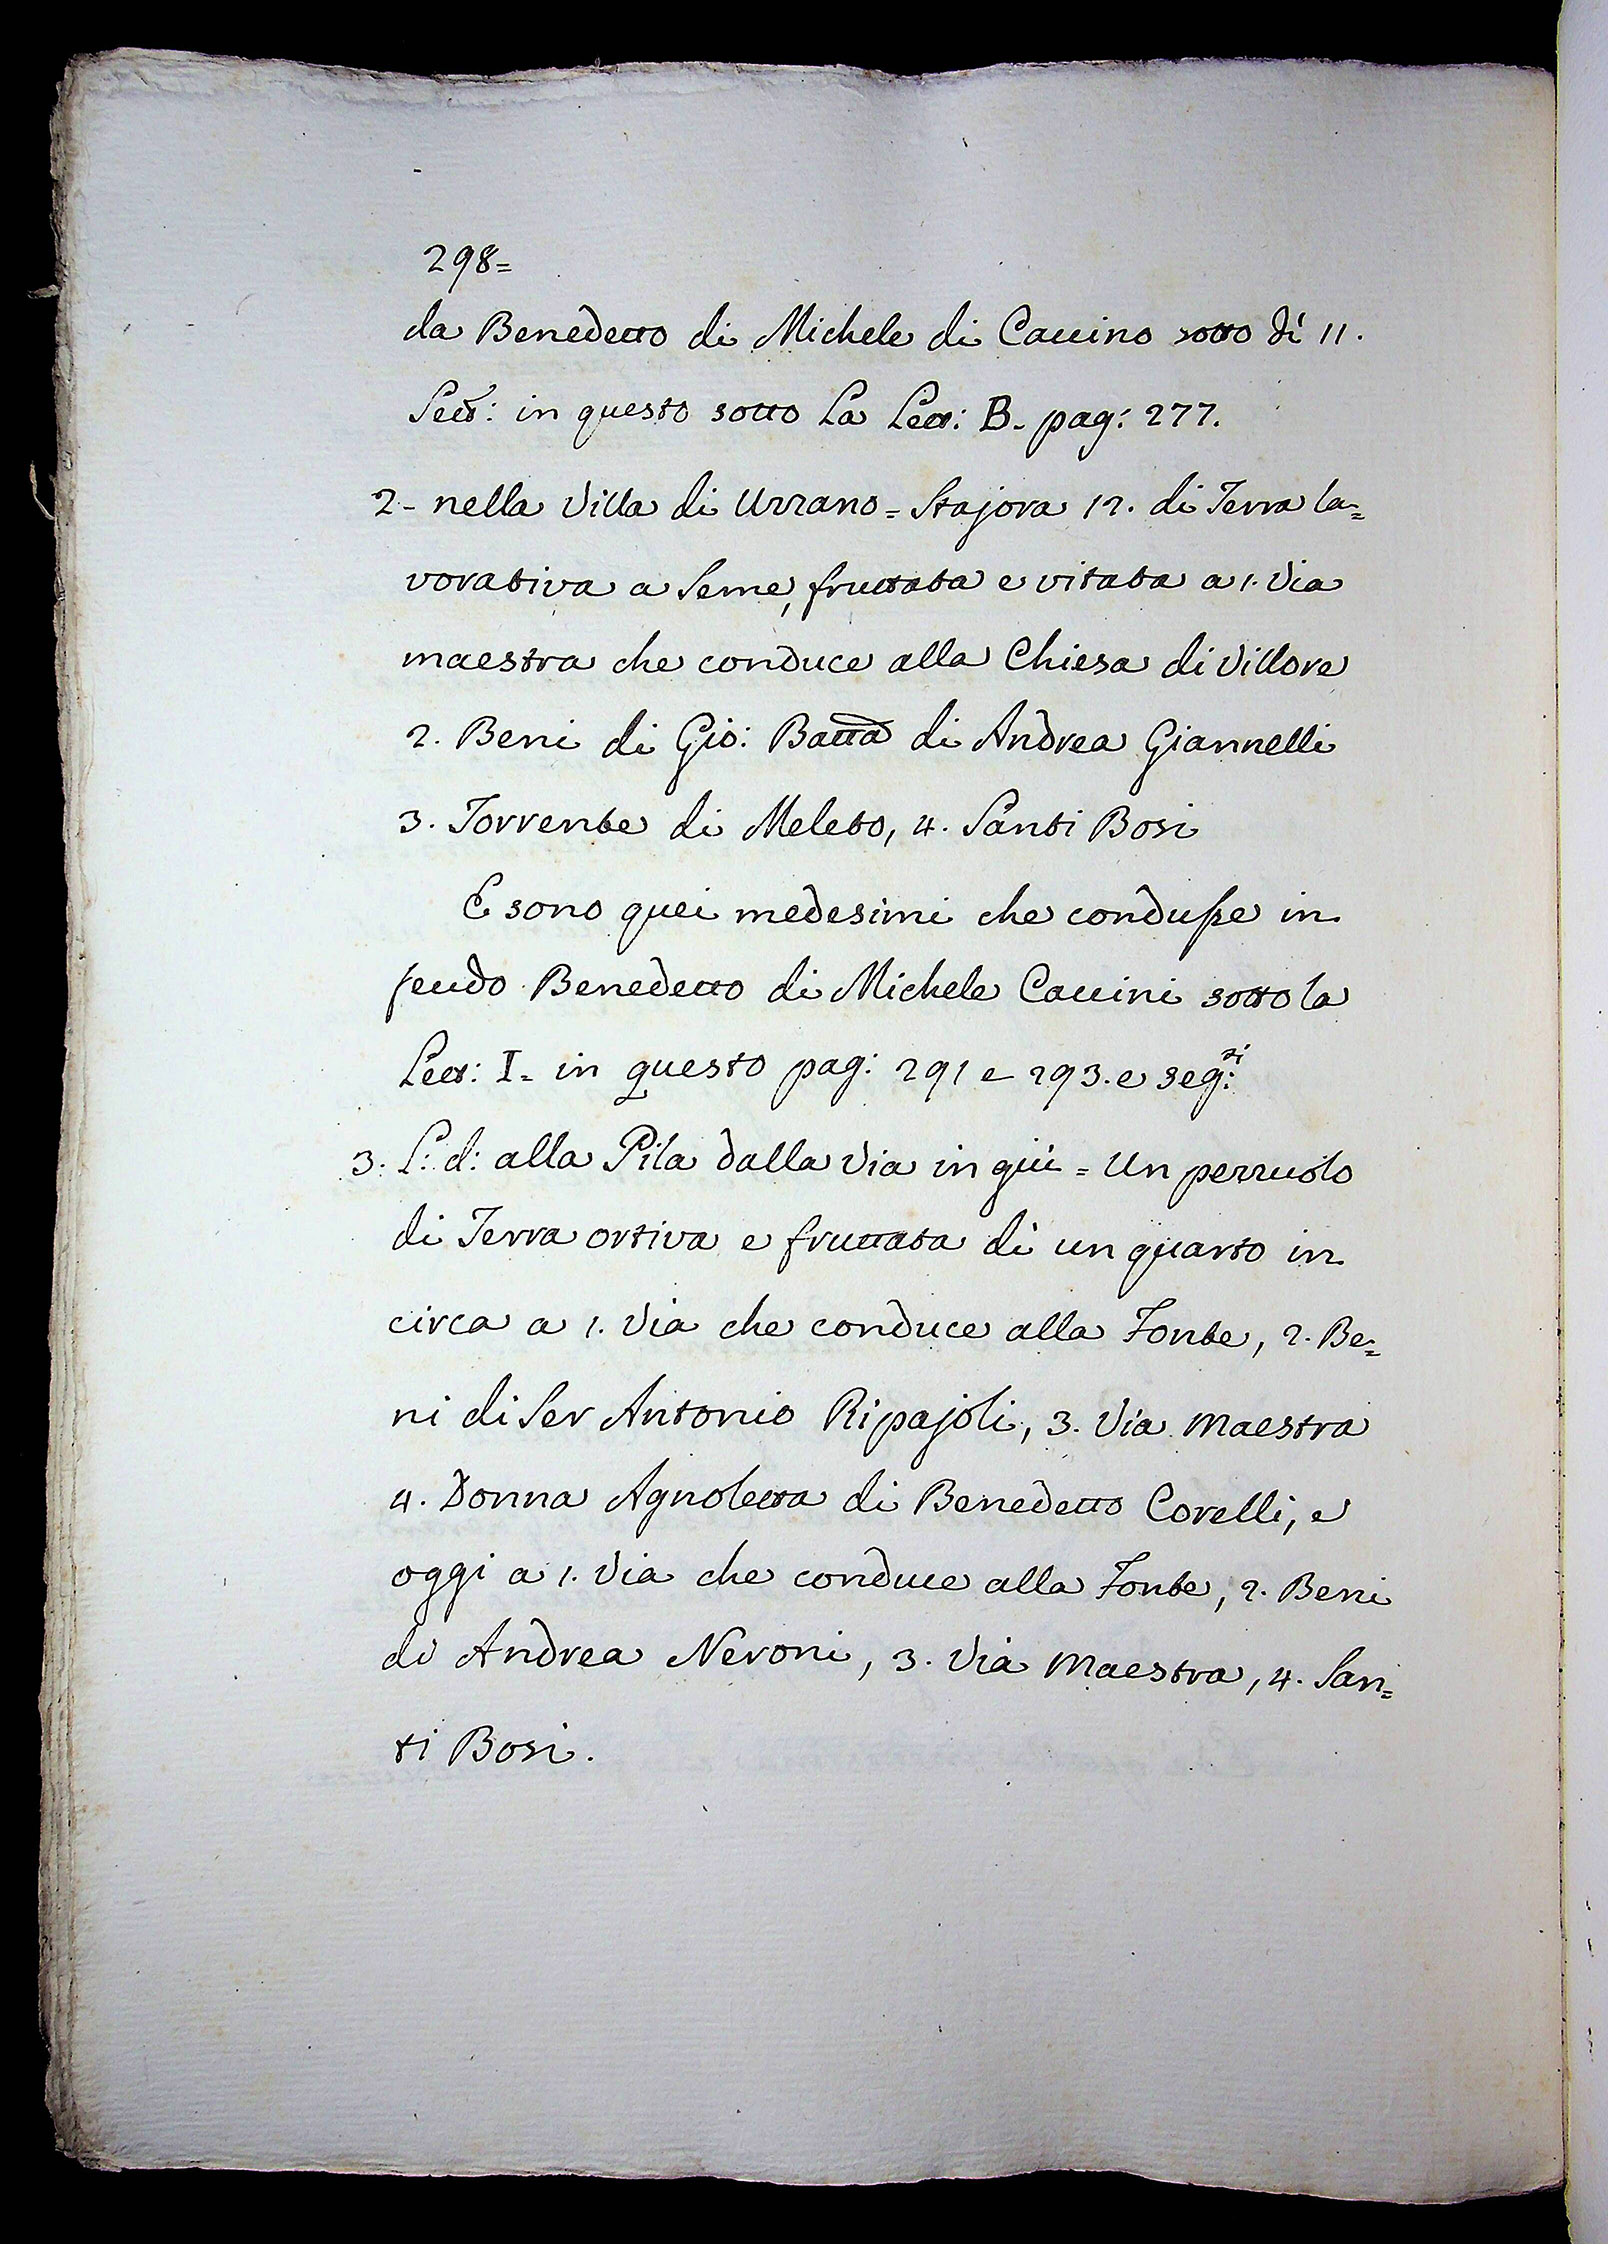 298=
da Benedetto di Michele di Caccino sotto dì 11.
Sett: in questo sotto La Lett: B. pag: 277.
2- nella Villa di Uzzano = Stajora 12. di Terra la=
vorativa a Seme, fruttata e vitata a 1. Via
maestra che conduce alla Chiesa di Villore
2. Beni di Gio: Batta di Andrea Giannelli
3. Torrente di Meleto, 4. Santi Bosi
E sono quei medesimi che condusse in
feudo Benedetto di Michele Caccini sotto la
Lett: I= in questo pag: 291 e 293. e seg:ti
3. L: d: alla Pila dalla Via in giù = Un pezzuolo
di Terra ortiva e fruttata di un quarto in
circa a 1. Via che conduce alla Fonte, 2. Be=
ni di Ser Antonio Ripajoli, 3. Via Maestra
4. Donna Agnoletta di Benedetto Corelli, e
oggi a 1. Via che conduce alla Fonte, 2. Beni
di Andrea Neroni, 3. Via Maestra, 4. San=
ti Bosi.